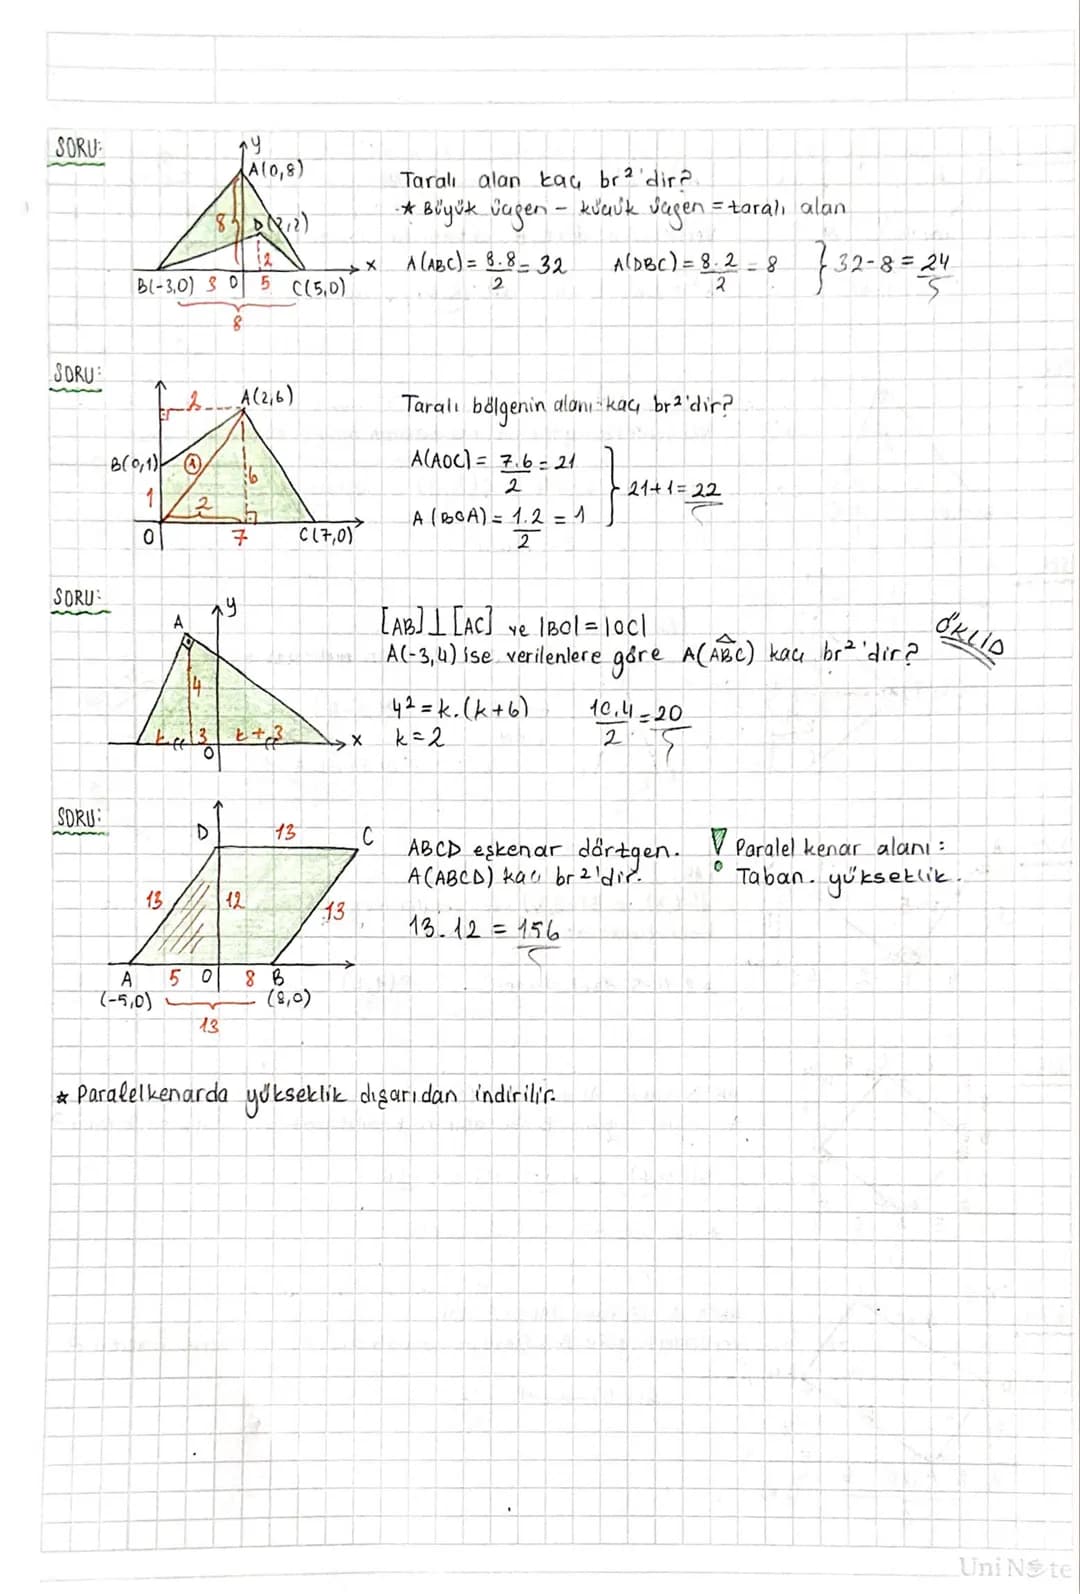 SORU:
y
A(0,8)
8
D(2,2)
2
x
B(-3,0) 3 0 5 C(5,0)
8
Taralı alan kaç br²'dir?
* Büyük üçgen - küçük üçgen = taralı alan
A(ABC) = 8.8/2 = 32 A(DBC) = 8.2/2 = 8 } 32-8 = 24
SORU:
2 A(2,6)
B(0,1) A 6
1 2
0 7 C(7,0)
Taralı bölgenin alanı kaç br²'dir?
A(AOC) = 7.6/2 = 21
A(BOA) = 1.2/2 = 1
} 21+1 = 22
SORU:
A y
4
k 3 k+3 x
0
[AB] ⊥ [AC] ve |BO| = |OC|
A(-3,4) ise verilenlere göre A(ABC) kaç br²'dir?
ÖKLİD
4² = k.(k+6) 10.4/2 = 20
k = 2
SORU:
D 13 C
13 12 13
A 5 0 8 B
(-5,0) (8,0)
13
ABCD eşkenar dörtgen.
A(ABCD) kaç br²'dir.
13.12 = 156
! Paralel kenar alanı:
Taban. yükseklik.
* Paralelkenarda yükseklik dışarıdan indirilir.
UniNote